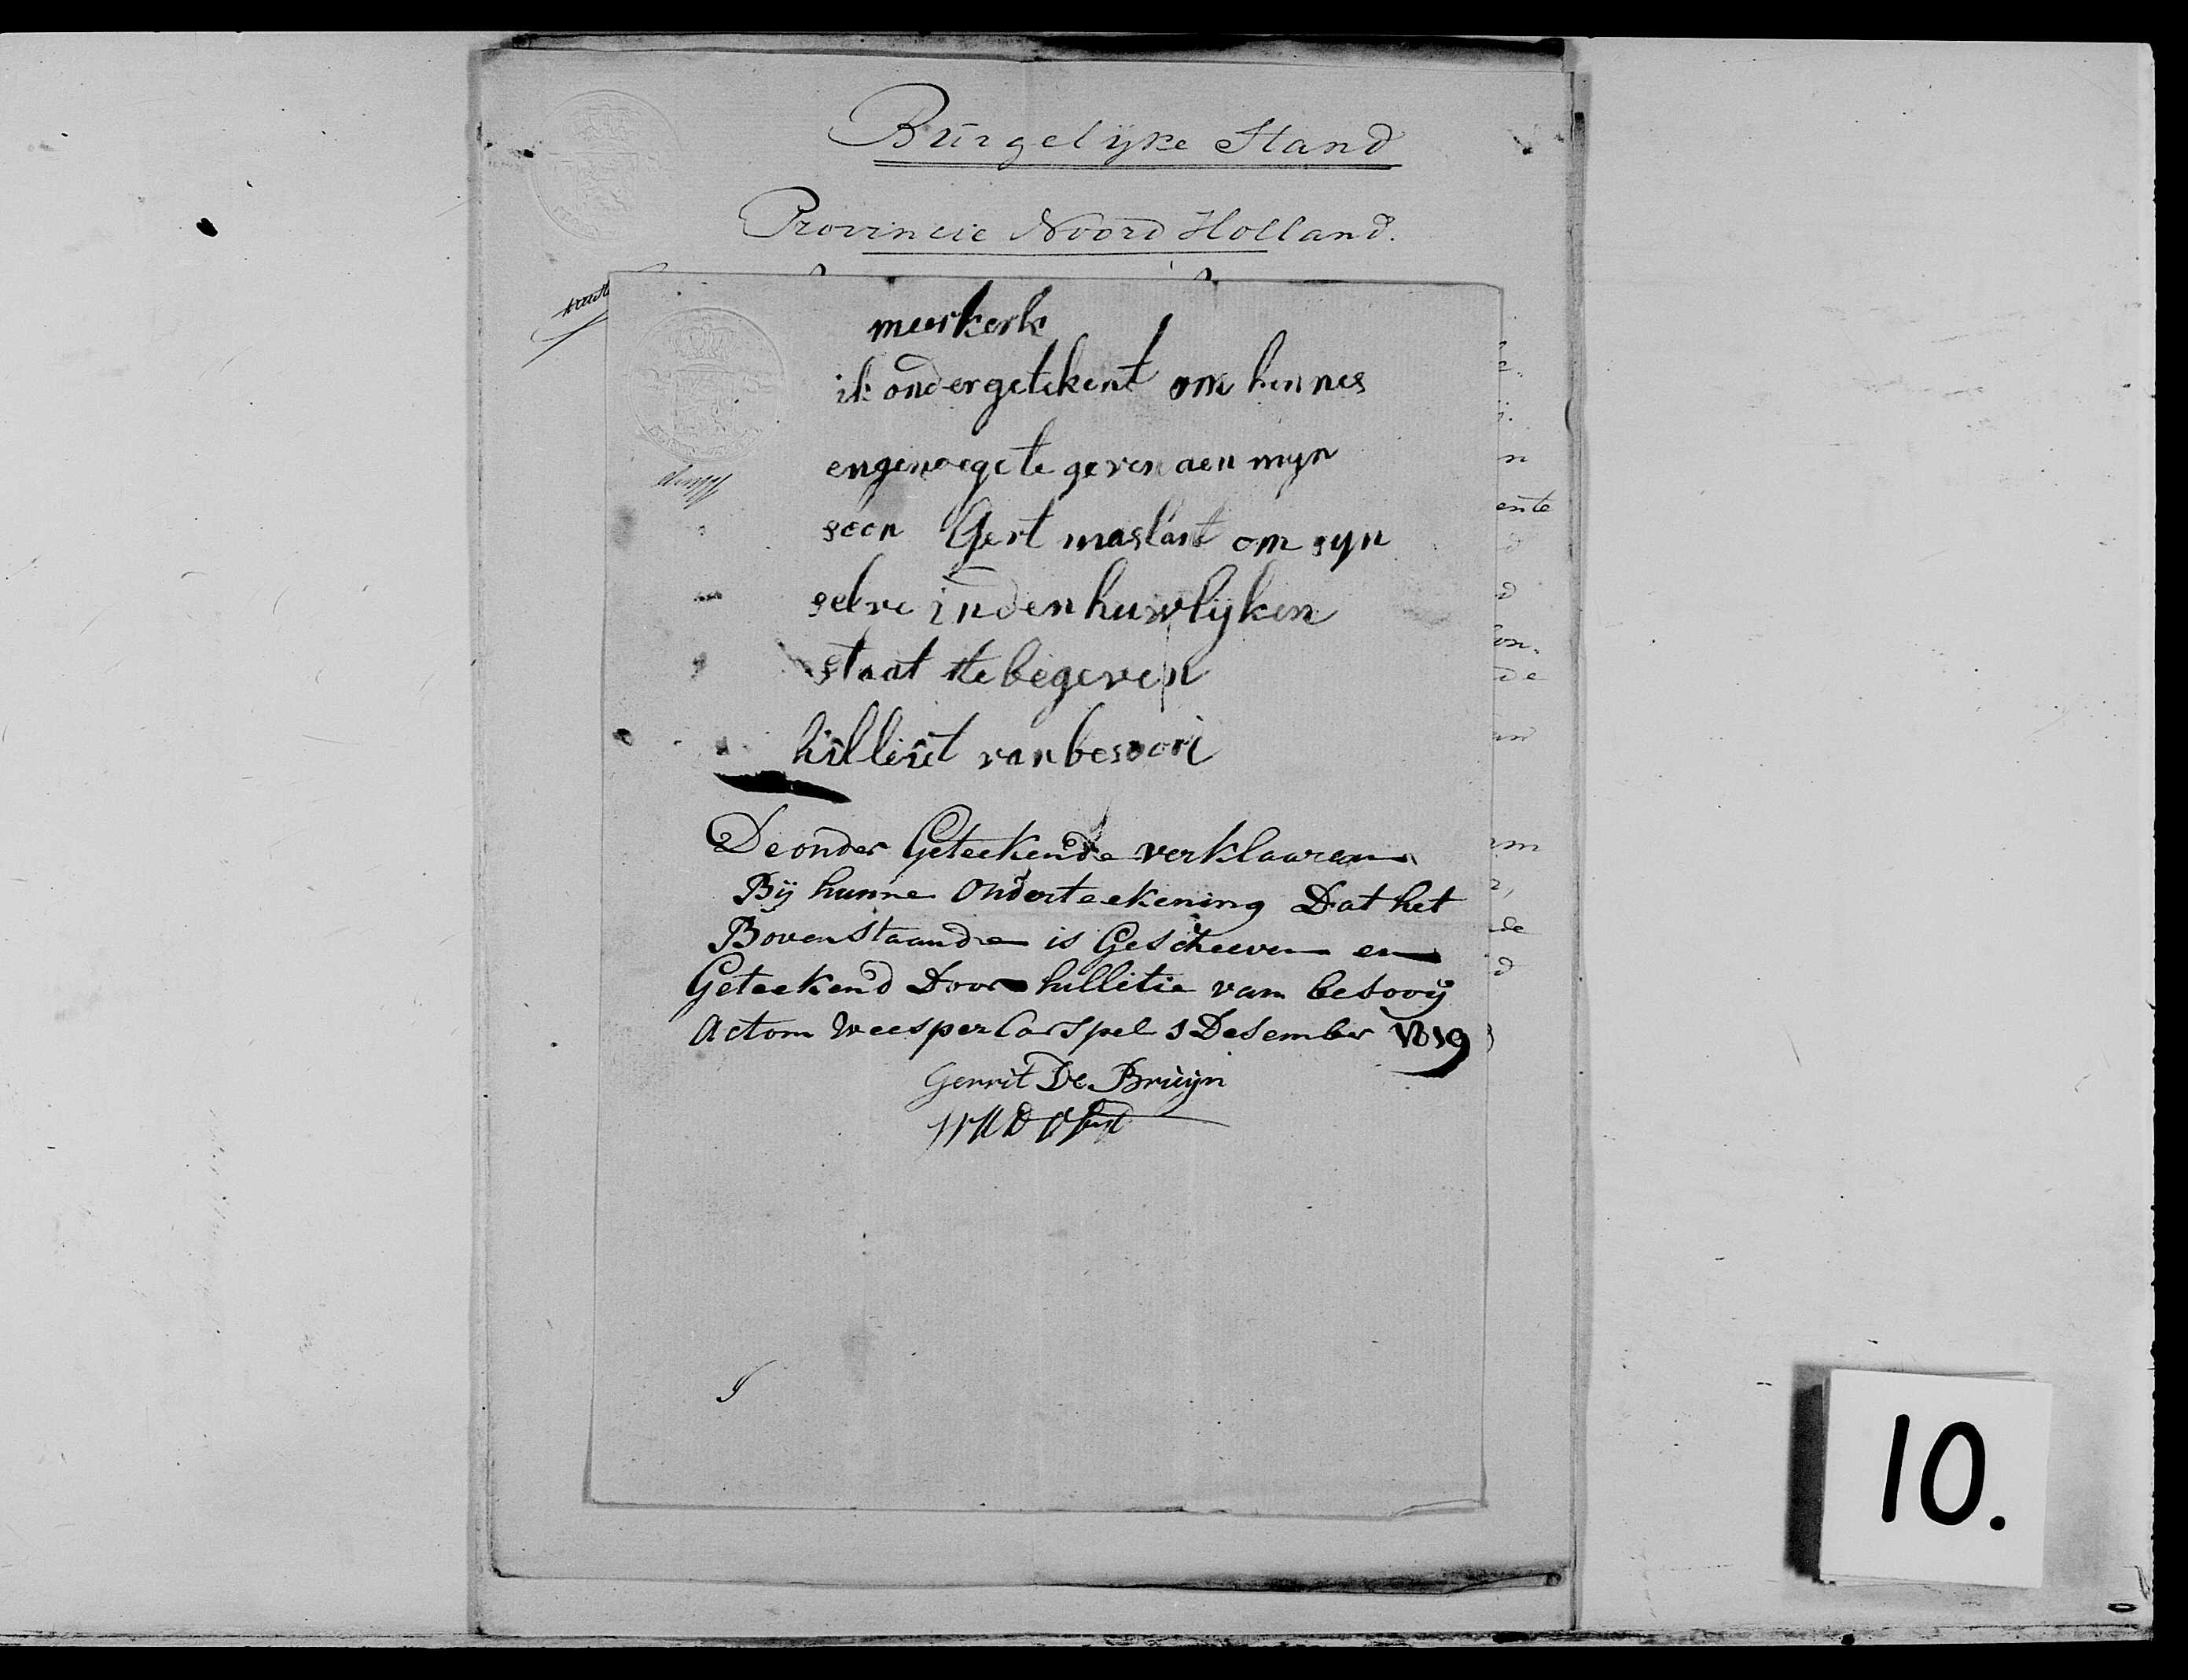 Burgelijke Stand
Provincie Noord Holland.
meerkerk
ik ondergetekent om kennes
engenoege te geven aen myn
soon Gert maslant om syn
selve in den huwlijken
staat te begeven
hilletit van besoori
De onder Geteekende verklaaren
Bij hunne Onderteekening Dat het
Bovenstaande is Gescheeven en
Geteekend Door hilletie van besooij
Actom Weesper Carspel 1 Desember 1819
Gerrit De Bruijn
ente
de
10.